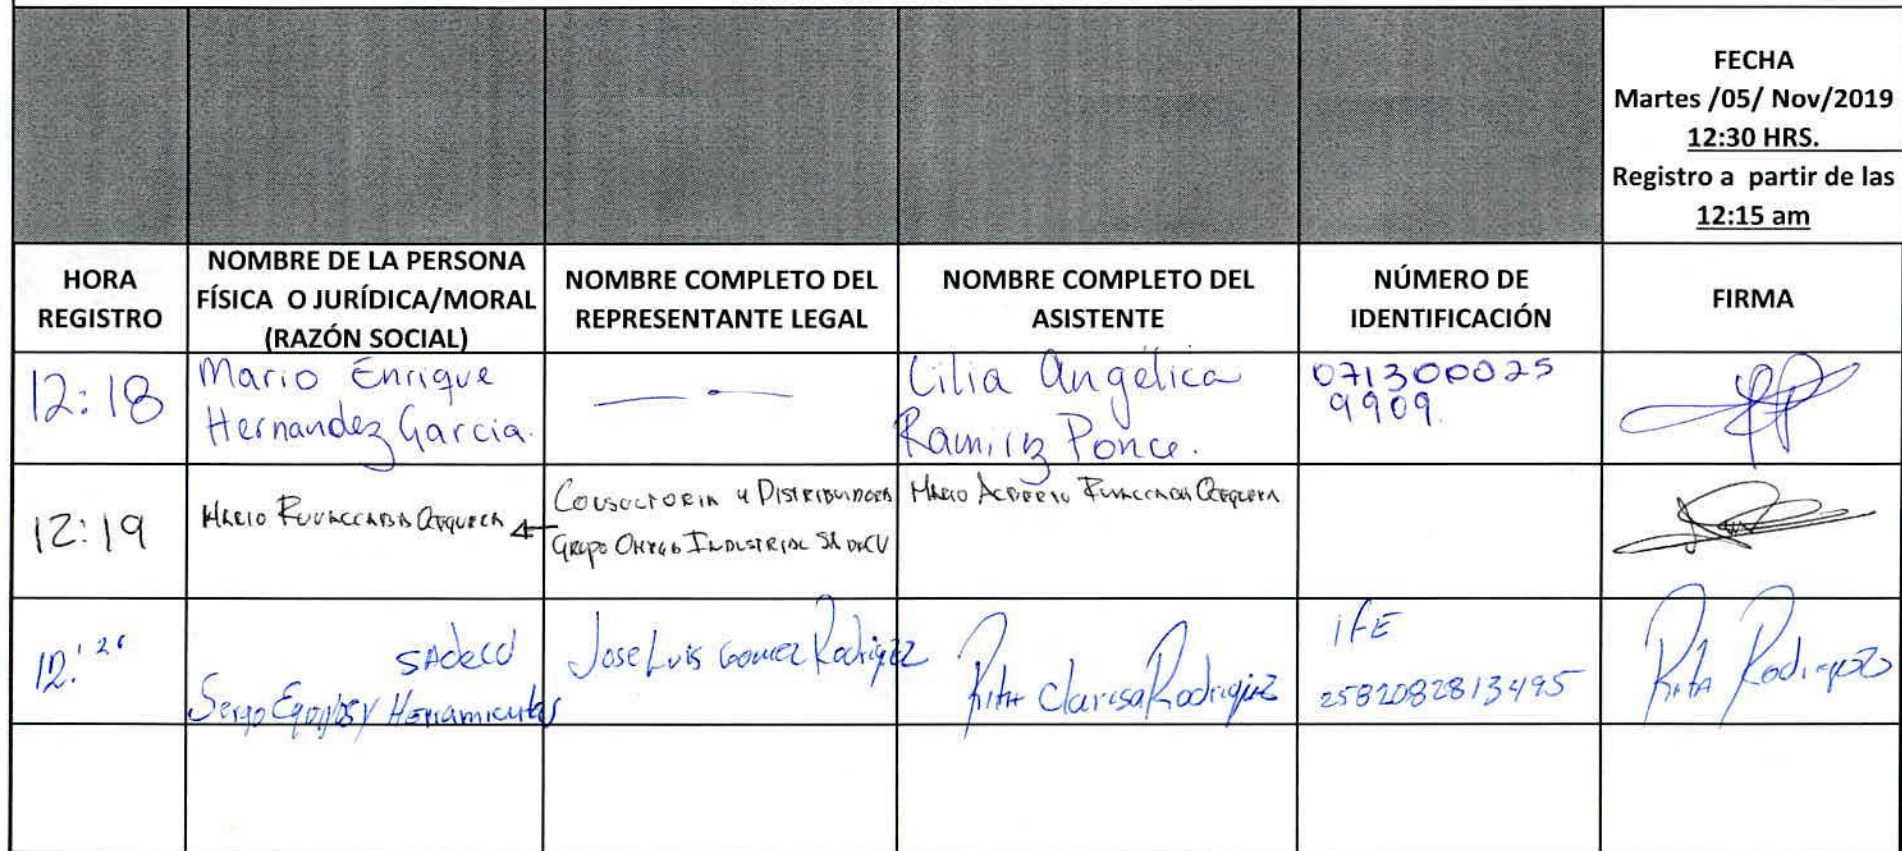 FECHA
Martes /05/ Nov/2019
12:30 HRS.
Registro a partir de las
12:15 am
HORA
REGISTRO
NOMBRE DE LA PERSONA
FÍSICA O JURÍDICA/MORAL
(RAZÓN SOCIAL)
NOMBRE COMPLETO DEL
REPRESENTANTE LEGAL
NOMBRE COMPLETO DEL
ASISTENTE
NÚMERO DE
IDENTIFICACIÓN
FIRMA
12:18
Mario Enrique
Hernandez Garcia.
Cilia Angélica
Ramirez Ponce.
071300025
9909.
12:19
MARIO
CONSULTORIA Y DISTRIBUIDORA
GRUPO INDUSTRIAL SA DE CV
MARIO ALBERTO
12:26
SAdeCV
Equipos y Herramientas
Jose Luis Gomez Rodriguez
Rita Clarisa Rodriguez
IFE
2582082813495
Rita Rodriguez